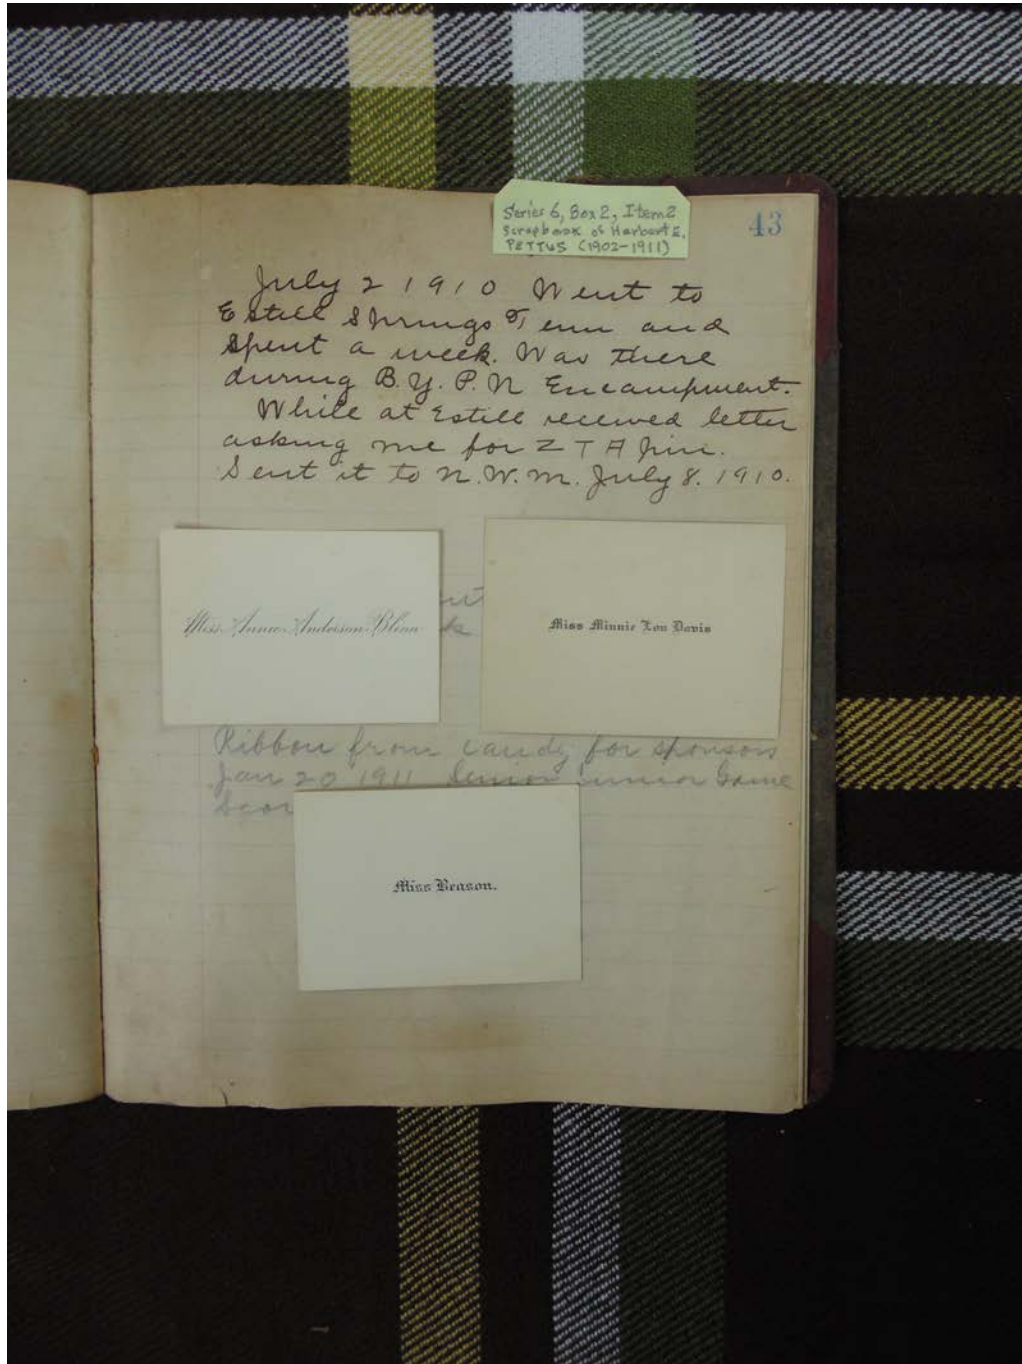 Series 6, Box 2, Item 2
Scrapbook of Herbert E.
PETTUS (1902-1911)
43
July 2 1910 Went to
Estill Springs Tenn and
spent a week. Was there
during B.Y.P.U Encampment.
While at Estill received letter
asking me for Z T A pin.
Sent it to N.W.M. July 8. 1910.
Miss Annie Anderson Blinn
Miss Minnie Lou Davis
Ribbon from candy for sponsors
Jan 20 1911 Senior Junior Game
Miss Beason.